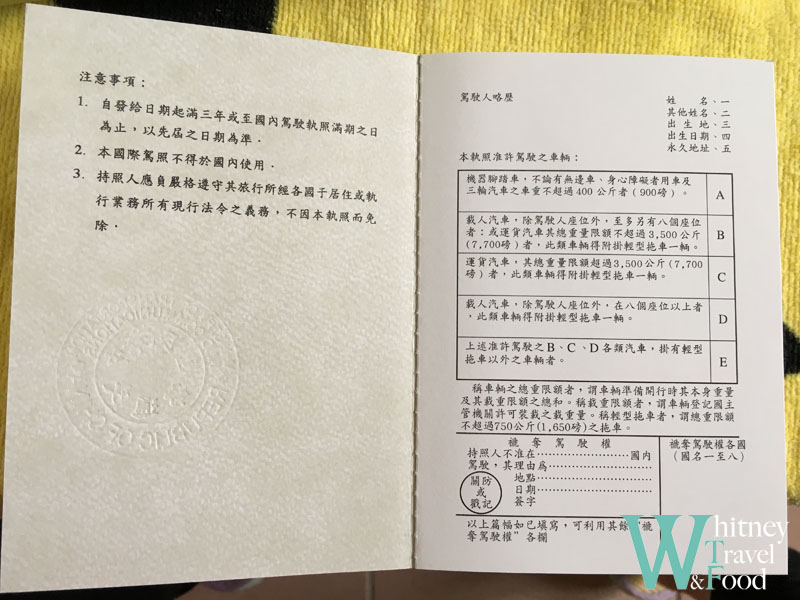 注意事項：
1. 自發給日期起滿三年或至國內駕駛執照滿期之日
為止，以先屆之日期為準．
2. 本國際駕照不得於國內使用．
3. 持照人應負嚴格遵守其旅行所經各國于居住或執
行業務所有現行法令之義務，不因本執照而免
除．
駕駛人略歷
姓　　名、一
其他姓名、二
出生地、三
出生日期、四
永久地址、五
本執照准許駕駛之車輛：
機器腳踏車，不論有無邊車、身心障礙者用車及
三輪汽車之車重不超過400公斤者(900磅)。
A
載人汽車，除駕駛人座位外，至多另有八個座位
者：或運貨汽車其總重量限額不超過3,500公斤
(7,700磅)者，此類車輛得附掛輕型拖車一輛。
B
運貨汽車，其總重量限額超過3,500公斤(7,700
磅)者，此類車輛得附掛輕型拖車一輛。
C
載人汽車，除駕駛人座位外，在八個座位以上者
，此類車輛得附掛輕型拖車一輛。
D
上述准許駕駛之B、C、D各類汽車，掛有輕型
拖車以外之車輛者。
E
稱車輛之總重限額者，謂車輛準備開行時其本身重量
及其載重限額之總和。稱載重限額者，謂車輛登記國主
管機關許可裝載之載重量。稱輕型拖車者，謂總重限額
不超過750公斤(1,650磅)之拖車。
褫奪駕駛權
持照人不准在…………………國內
駕駛，其理由為…………………
地點…………………
日期…………………
簽字
關防
或
戳記
褫奪駕駛權各國
(國名一至八)
以上篇幅如已填寫，可利用其餘"褫
奪駕駛權"各欄
Whitney
Travel
&Food